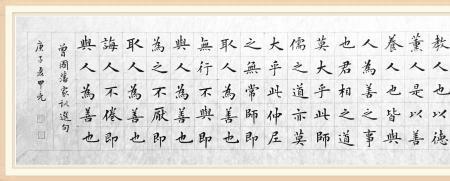 教人也以德
薰人是以善
養人也皆與
人為善之事
也君相之道
莫大乎此師
儒之道亦莫
大乎此仲尼
之無常師即
取人為善也
無行不與即
與人為善也
為之不厭即
取人為善也
誨人不倦即
與人為善也
曾國藩家訓選句
庚子